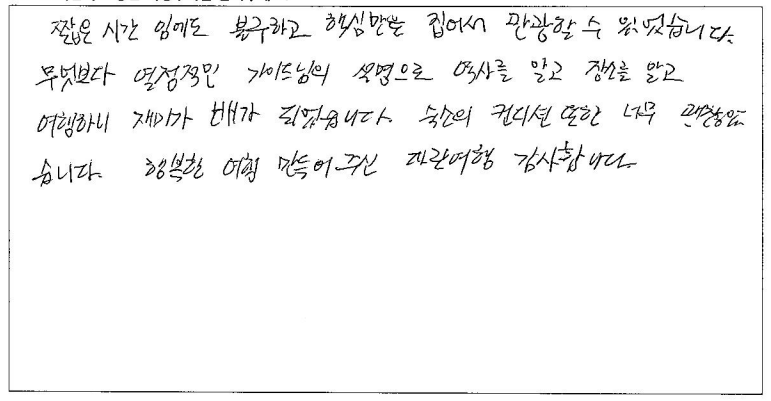 짧은 시간 임에도 불구하고 핵심만을 집어서 관광할 수 있었습니다.
무엇보다 열정적인 가이드님의 설명으로 역사를 알고 장소를 알고
여행하니 재미가 배가 되었습니다. 숙소의 컨디션 또한 너무 괜찮았
습니다. 행복한 여행 만들어 주신 파란여행 감사합니다.